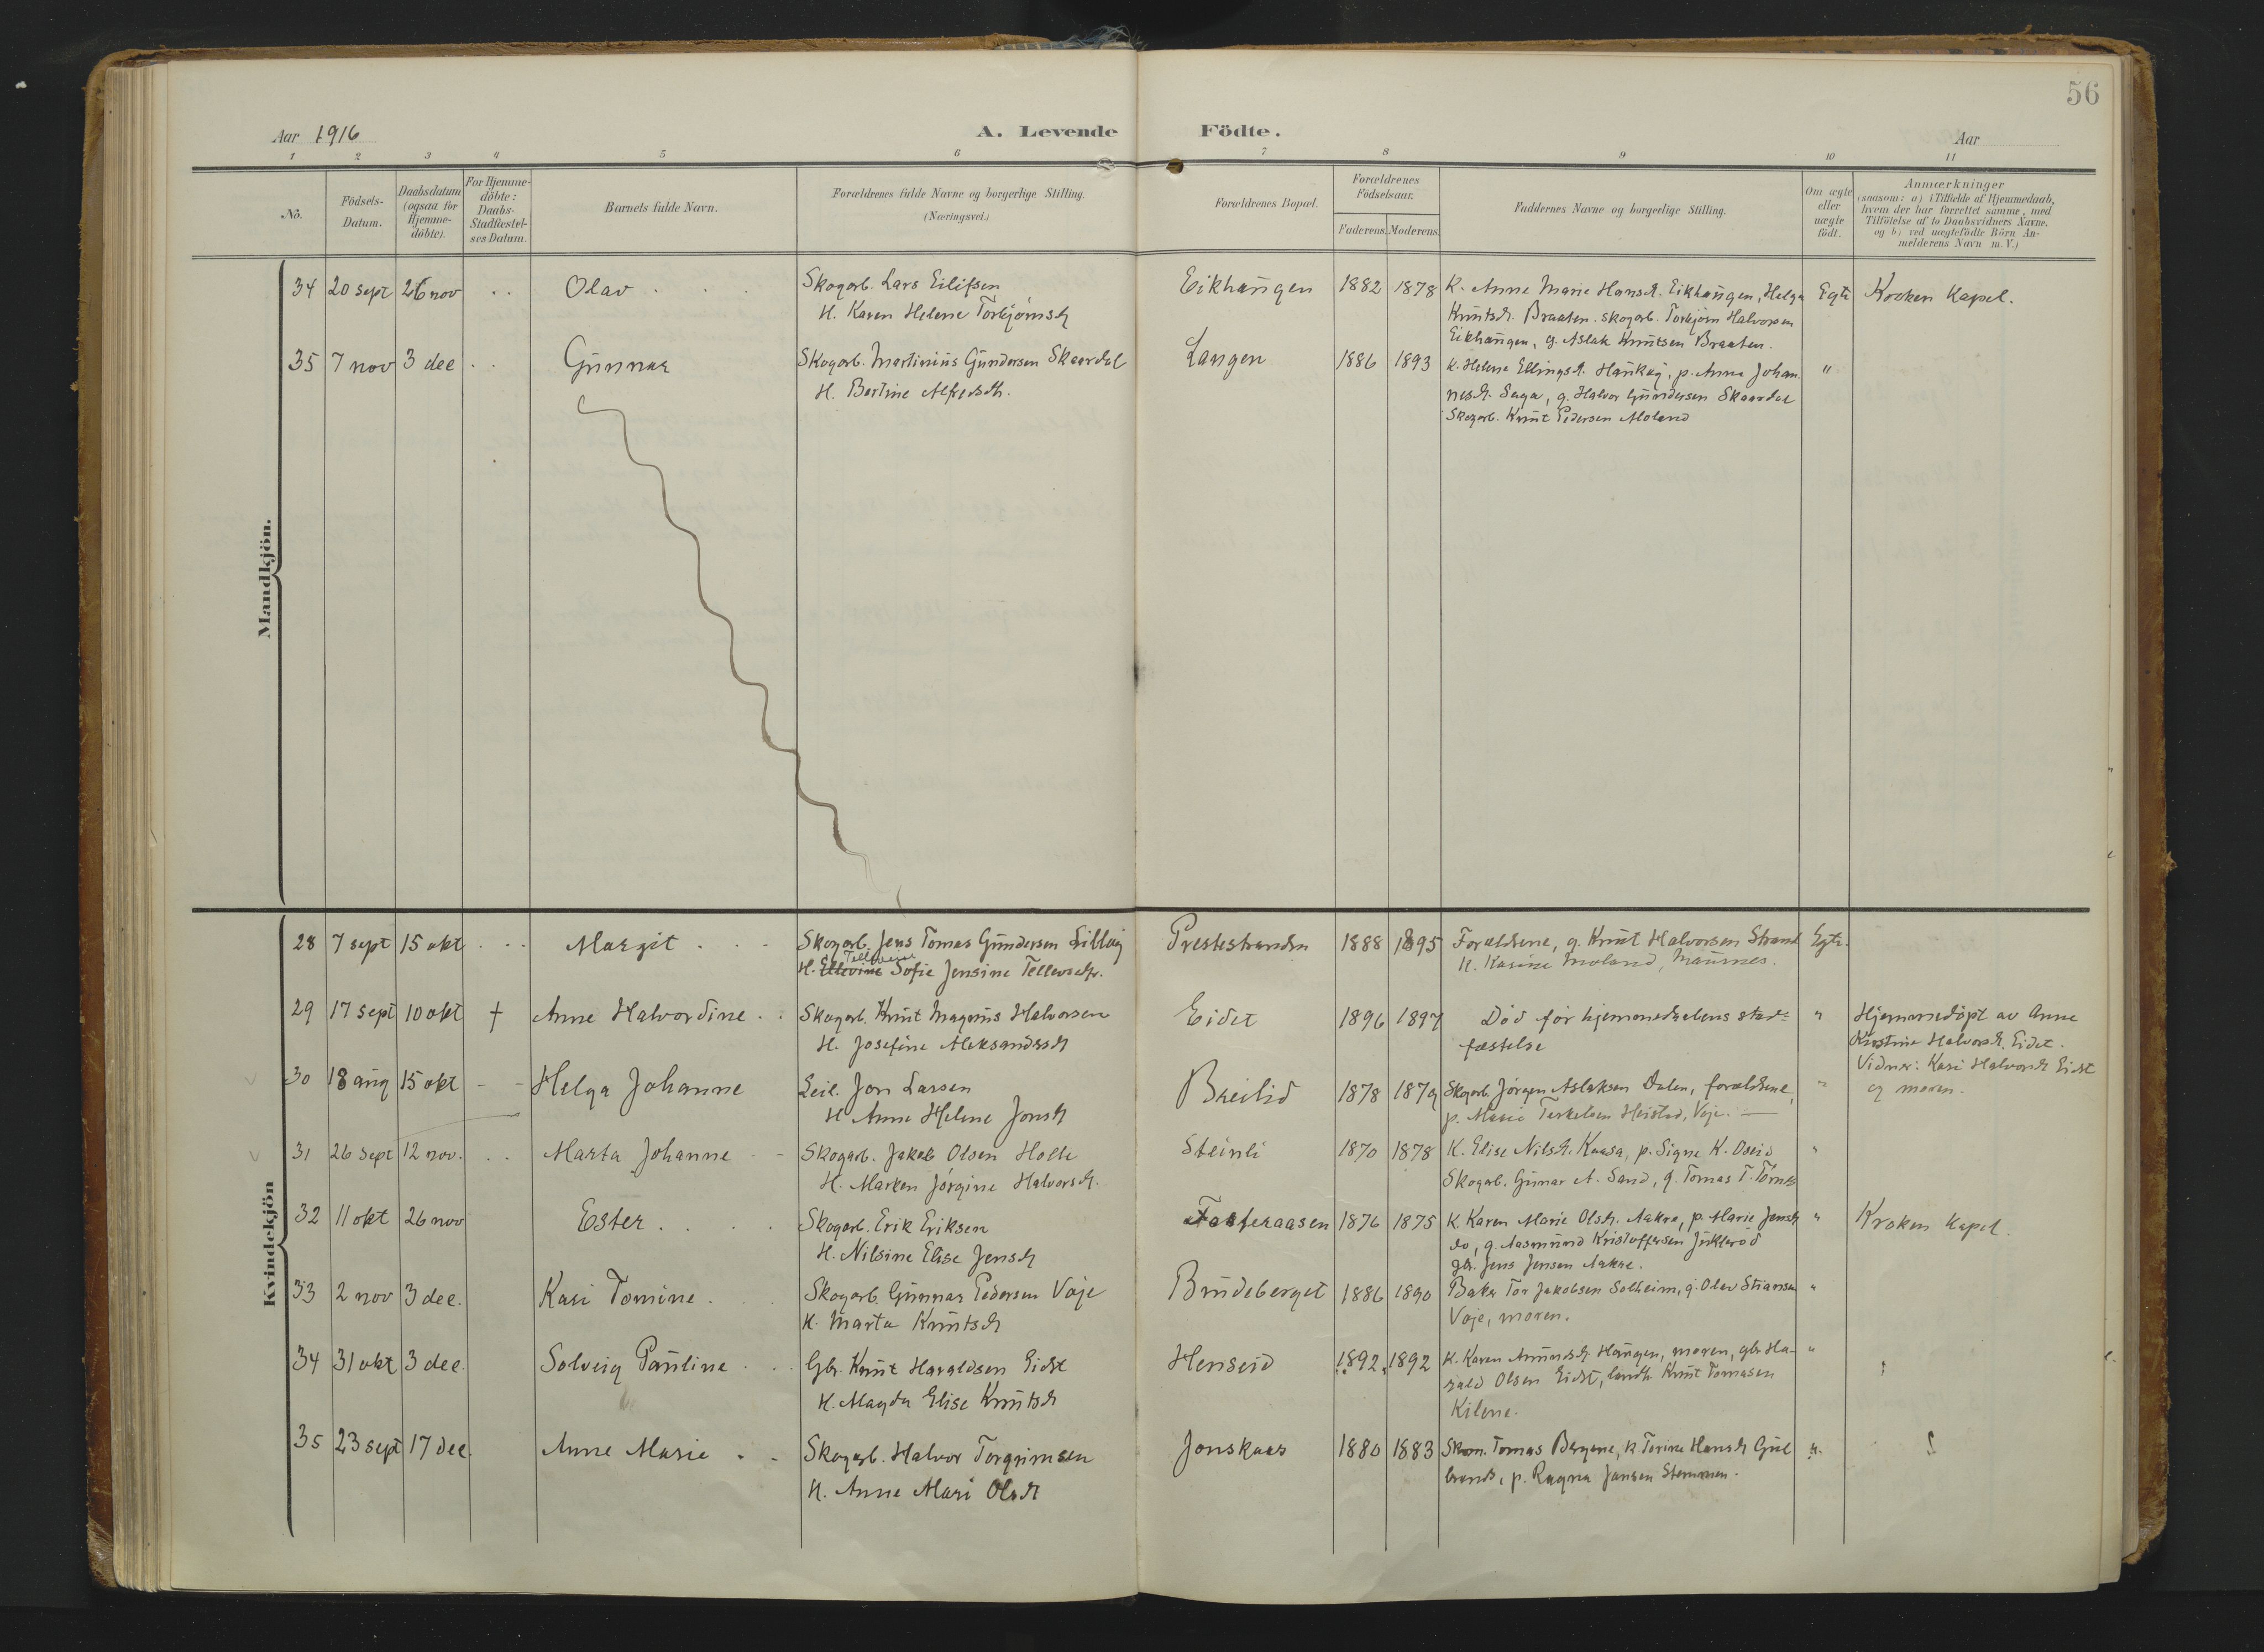 56
Aar 1916
A. Levende Födte.
Aar
1 2 3 4 5 6 7 8 9 10 11
No.
Födsels-
Datum.
Daabsdatum
(ogsaa for
Hjemme-
döbte).
For Hjemme-
döbte:
Daabs-
Stadfæstel-
ses Datum.
Barnets fulde Navn.
Forældrenes fulde Navne og borgerlige Stilling.
(Næringsvei.)
Forældrenes Bopæl.
Forældrenes
Födselsaar.
Faderens. Moderens.
Faddernes Navne og borgerlige Stilling.
Om ægte
eller
uægte
födt.
Anmærkninger
(saasom: a) i Tilfælde af Hjemmedaab,
hvem der har forrettet samme, med
Tilföielse af to Daabsvidners Navne.
og b) ved uægtefödte Börn An-
melderens Navn m. V.)
Mandkjön.
34 20 sept 26 nov . . Olav . . .
Skogarb. Lars Eilifsen
H. Karen Helene Torbjörnsd.
Eikhaugen 1882 1878
K. Anne Marie Hansd. Eikhaugen, Helga
Knutsd. Braaten. skogarb. Torbjörn Halvorsen
Eikhaugen, g. Aslak Knutsen Braaten.
Egte Kroken Kapel.
35 7 nov 3 dec . . Gunnar
Skogarb. Martinius Gundersen Skaardal
H. Bertine Alfredsdtr.
Langen 1886 1893
K. Helene Ellingsd. Haukeg, p. Anna Johan
nesd. Saga, g. Halvor Gundersen Skaardal
Skogarb. Knut Pedersen Moland
"
Kvindekjön
28 7 sept 15 okt . . . Margit . . .
Skogarb. Jens Tomas Gundersen Lilleg
Tellevine
H. Ellevine Sofie Jensine Tellevsdtr.
Prestestranden 1888 1895
Forældrene, g. Knut Halvorsen Strand
K. Karine Moland, Maurnes.
Egte.
29 17 sept 10 okt † Anne Halvordine . .
Skogarb. Knut Magnus Halvorsen
H. Josefine Aleksandersd
Eidet 1896 1897
Död før hjemmedaabens stad=
fæstelse
"
Hjemmedöpt av Anne
Kristine Halvorsd. Eidet.
Vidner: Kari Halvorsd Eidet
og moren.
30 18 aug 15 okt - - Helga Johanne
Leil. Jon Larsen
H Anne Helene Jonsd
Breilid 1878 1879
Skogarb Jörgen Aslaksen Dalen, forældrene,
p. Marie Terkelsen Heistad, Voje.
"
31 26 sept 12 nov. . . Marta Johanne - -
Skogarb. Jakob Olsen Holte
H. Marken Jörgine Halvorsd.
Steinli 1870 1878
K. Elise Nilsd. Kaasa, p. Signe K. Oseid
Skogarb. Gunar A. Sand, g. Tomas T. Törnes
"
32 11 okt 26 nov Ester . . . .
Skogarb. Erik Eriksen
H. Nilsine Elise Jensd
Fosteraasen 1876 1875
K. Karen Marie Olsd. Aakre, p. Marie Jensd
do, g. Aasmund Kristoffersen Juklerød
gbr. Jens Jensen Aakre.
" Kroken Kapel.
33 2 nov 3 dec. Kari Tomine . .
Skogarb. Gunnar Pedersen Voje
H. Marta Knutsd
Brudeberget 1886 1890
Baker Tor Jakobsen Solheim, g. Olav Stiansen
Voje, moren.
"
34 31 okt 3 dec. Solveig Pauline . . .
Gbr. Knut Haraldsen Eidet
H. Magda Elise Knutsd
Henseid 1892 1892
K. Karen Amundsd. Haugen, moren, gbr Ha-
rald Olsen Eidet, landh. Knut Tomasen
Kilene.
"
35 23 sept 17 dec. Anne Marie . .
Skogarb. Halvor Torgrimsen
H. Anne Mari Olsd
Jonskaas 1880 1883
Skom. Tomas Bergene, K. Torine Hansd Gul
brands, p. Ragna Jansen Stemmen.
"